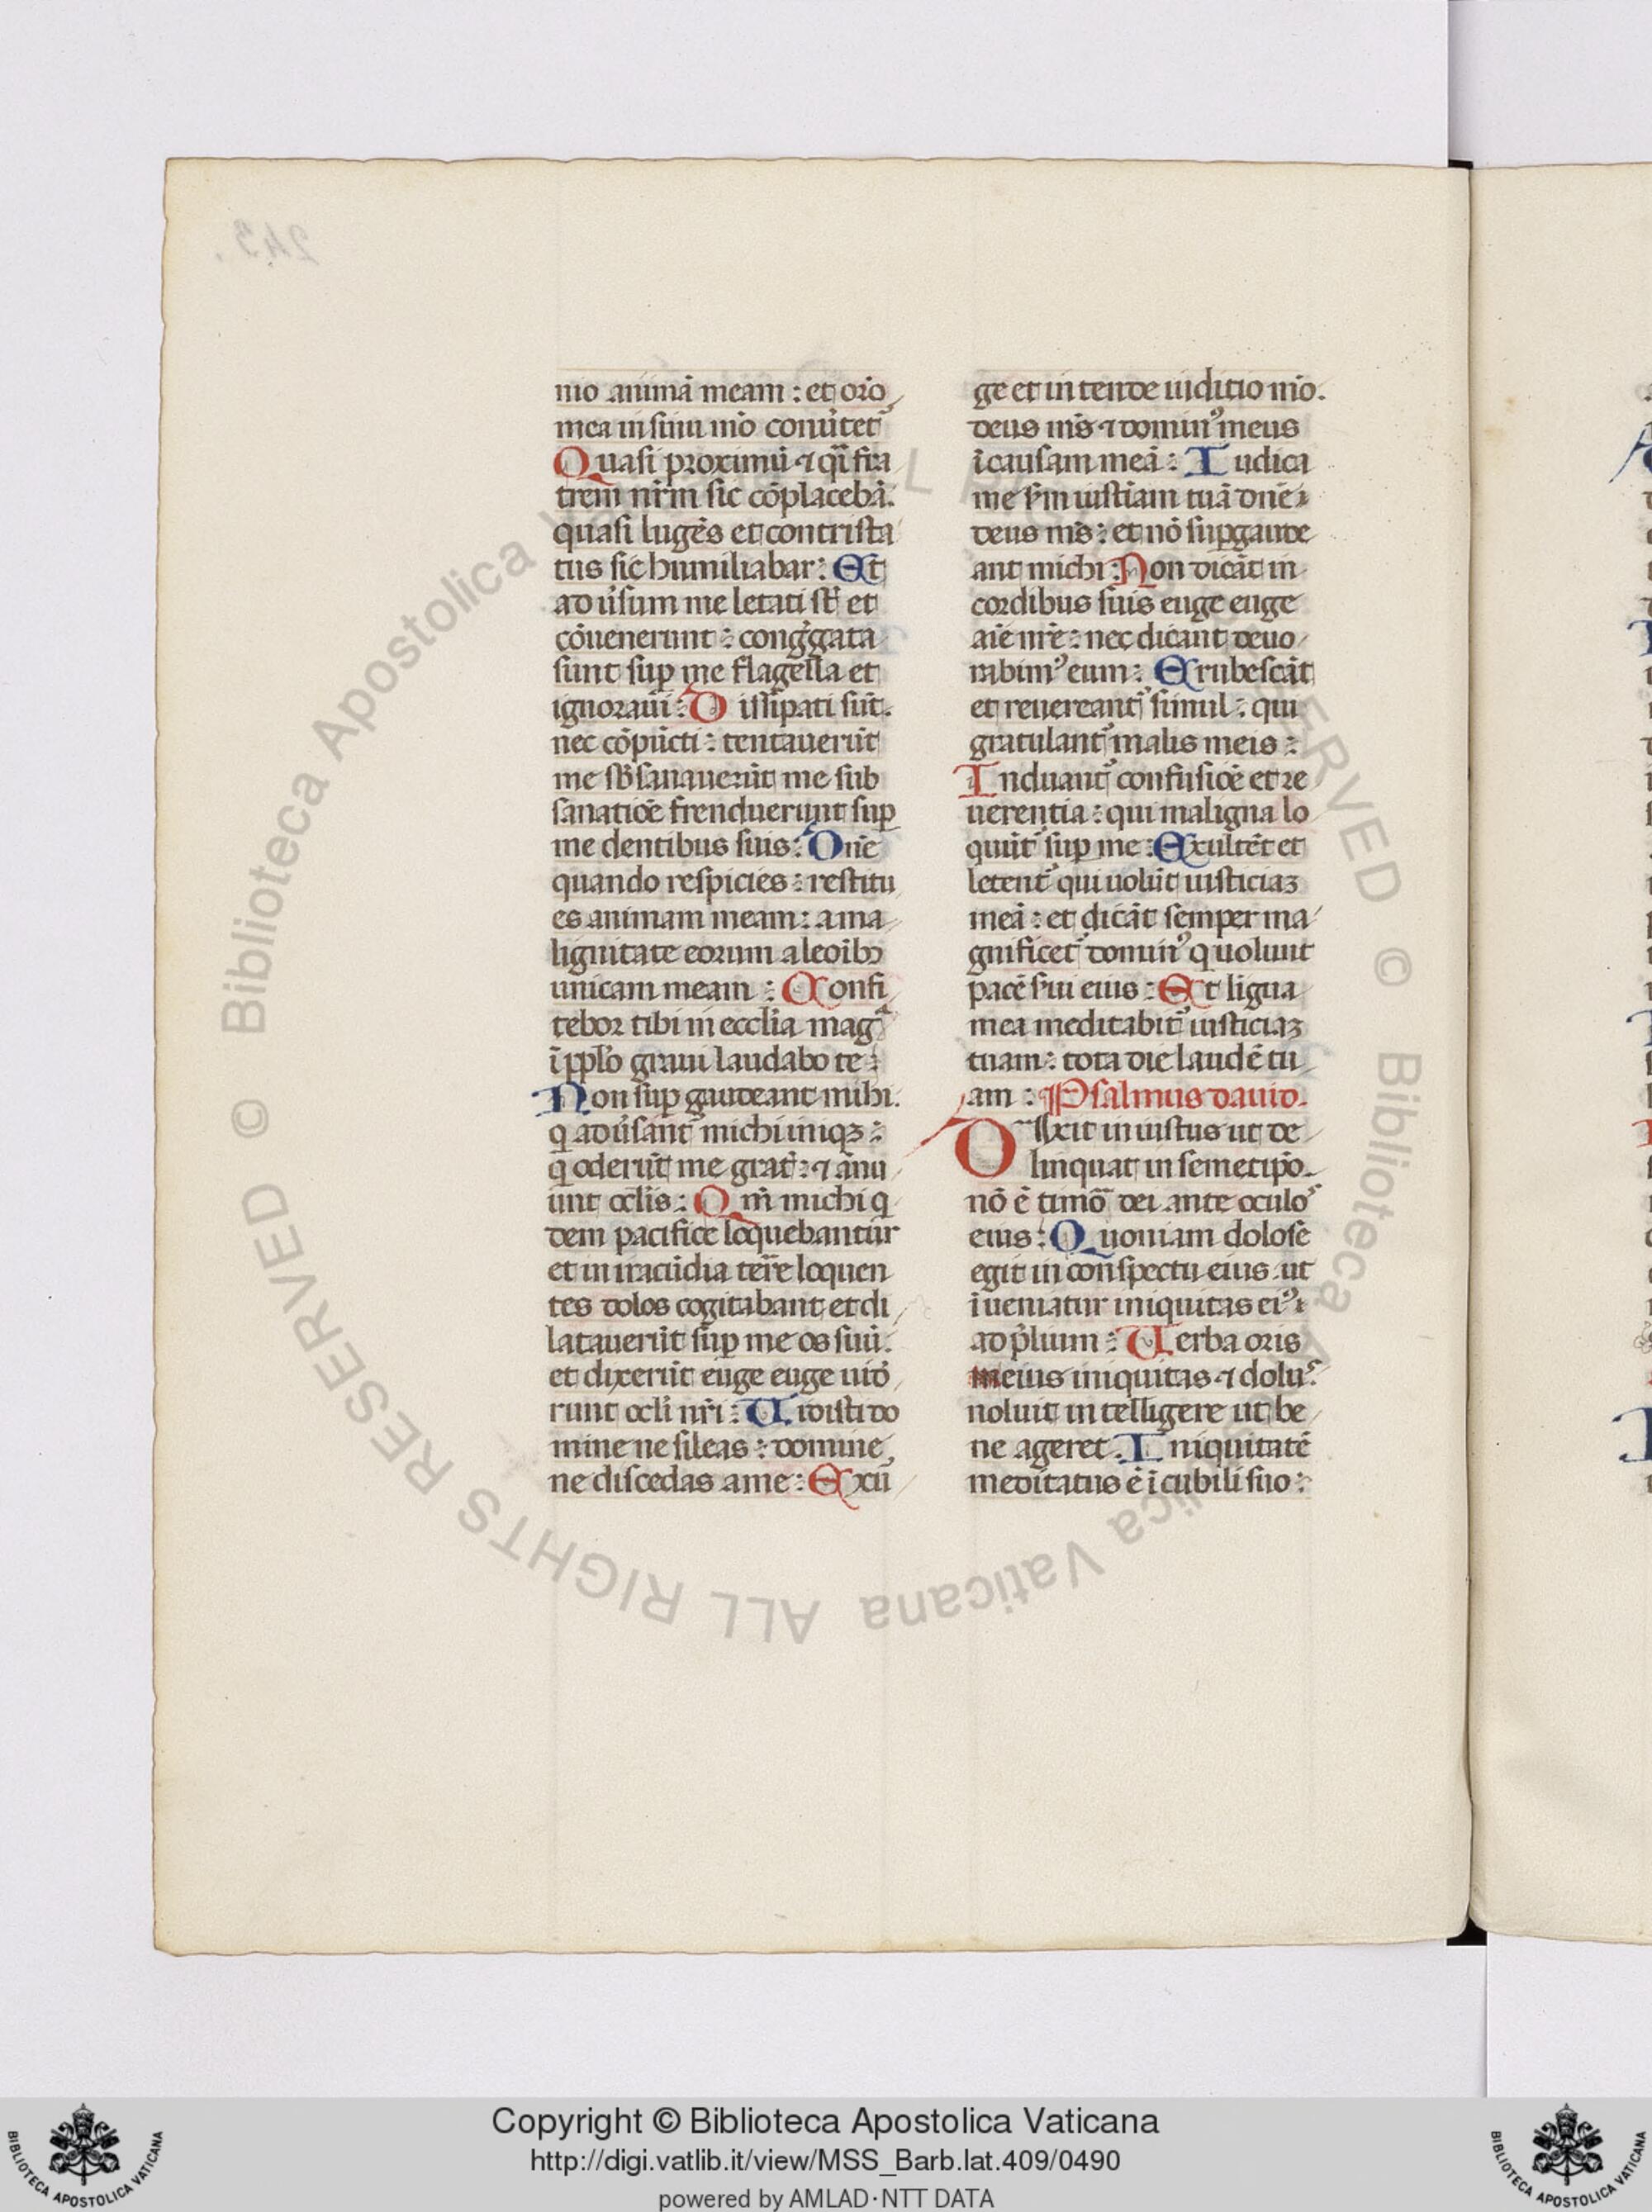 243.
nio animā meam : et or̄o
mea in sinu mō conūtet᷑
Quasi proximū ⁊ q̄i fra
trem nr̄m sic cōplacebā.
quasi lugēs et contrista
tus sic humiliabar : Et
ad ūsum me letati st̄ et
cōuenerunt : congḡata
sunt suꝑ me flagella et
ignoraūi : Dissipati sūt.
nec cōpūcti : tentauerūt
me sb̄sanauerūt me sub
sanatiōe frenduerunt suꝑ
me dentibus suis : Dn̄e
quando respicies : restitu
es animam meam : a ma
lignitate eorum a leoībꝫ
unicam meam : Confi
tebor tibi in ecclīa magᵃ
ī ppl̄o graui laudabo te :
Non suꝑ gaudeant mihi.
q̄ adūsant᷑ michi iniqꝫ :
q̄ oderūt me grat̄ : ⁊ ānu
unt ocl̄is : Qm̄ michi q̄
dem pacifice loquebantur
et in iracūdia terr̄e loquen
tes dolos cogitabant et di
latauerūt suꝑ me os suū.
et dixerūt euge euge uid̄
runt ocl̄i nr̄i : Uidisti do
mine ne sileas : domine
ne discedas a me : Exū
ge et intende iuditio mō.
deus ms̄ ⁊ dominꝰ meus
ī causam meā : Iudica
me s̄m iustiam tuā dn̄e
deus ms̄ : et nō suꝑgaude
ant michi : Non dicāt in
cordibus suis euge euge
aīe nr̄e : nec dicant deuo
rabimꝰ eum : Erubescāt
et reuereant᷑ simul : qui
gratulant᷑ malis meis :
Induant᷑ confusiōe et re
uerentia : qui maligna lo
quūt᷑ suꝑ me : Exultēt et
letent᷑ qui uolūt iusticiaꝫ
meā : et dicāt semper ma
gnificet᷑ dominꝰ q uolunt
pacē s̄ui eius : Et ligua
mea meditabit᷑ iusticiaꝫ
tuam : tota die laudē tu
am : Psalmus dauid.
Dixit iniustus ut de
linquat in semetip̄o.
nō ē timor̄ dei ante oculoˢ
eius : Quoniam dolose
egit in conspectu eius ut
īueniatur iniquitas eiꝰ
ad p̄lium : Uerba oris
eius iniquitas ⁊ doluˢ.
noluit intelligere ut be
ne ageret. Iniquitatē
meditatus ē ī cubili suo :
© Biblioteca Apostolica Vaticana ALL RIGHTS RESERVED
© Biblioteca Apostolica Vaticana ALL RIGHTS RESERVED
Copyright © Biblioteca Apostolica Vaticana
http://digi.vatlib.it/view/MSS_Barb.lat.409/0490
powered by AMLAD·NTT DATA
BIBLIOTECA APOSTOLICA VATICANA
BIBLIOTECA APOSTOLICA VATICANA